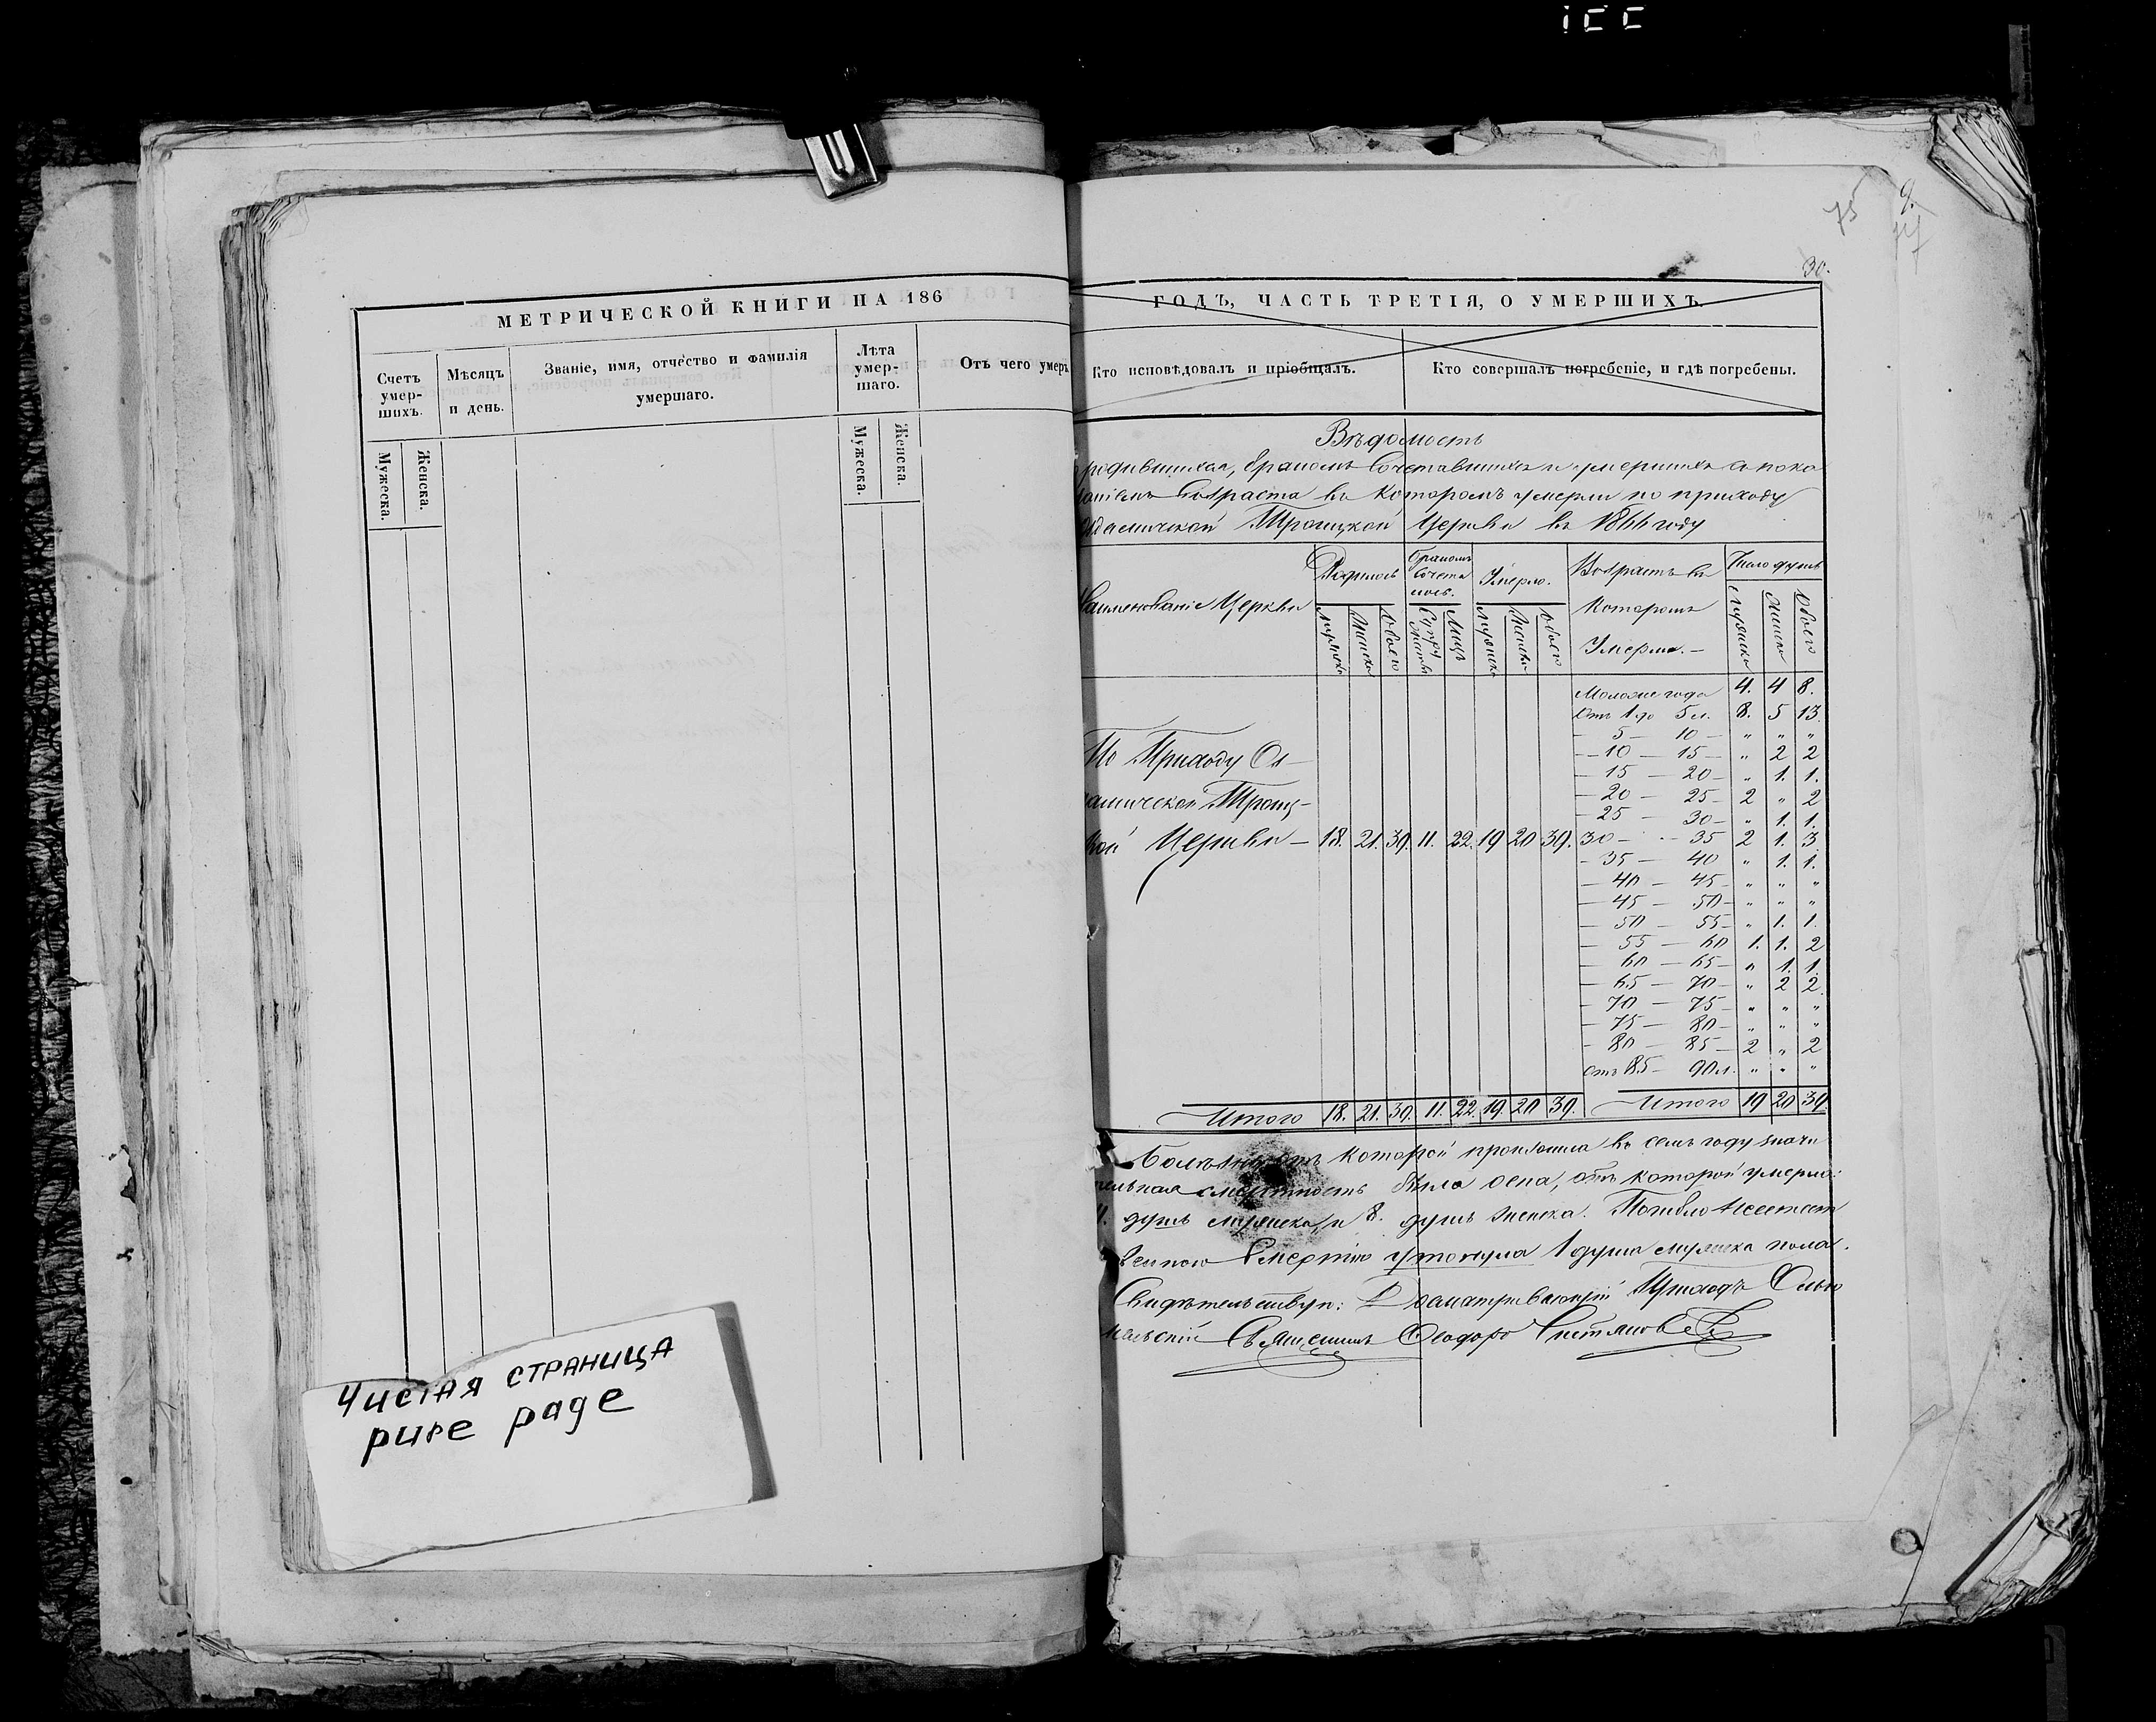 75
30.
МЕТРИЧЕСКОЙ КНИГИ НА 186
Счетъ умер-шихъ.
Мужеска.
Женска.
Мѣсяцъ и день.
Званіе, имя, отчество и фамилія умершаго.
Лѣта умер-шаго.
Мужеска.
Женска.
Отъ чего умеръ
Чистая страница
pure page
ГОДЪ, ЧАСТЬ ТРЕТІЯ, О УМЕРШИХЪ.
Кто исповѣдовалъ и пріобщалъ.
Кто совершалъ погребеніе, и гдѣ погребены.
Вѣдомость
родившихся, бракомъ сочетавшихся и умершихъ съ пока
заніемъ возраста въ которомъ умерли по приходу
Троицкой Церкви въ 1866 году
Наименованіе Церкви
Родилось
Мужска
Женска
Обоего
Бракомъ сочета лось.
Супру жествъ
Лицъ
Умерло.
Мужска
Женска
Обоего
Возрастъ въ
которомъ
Умерли. —
Число душъ
Мужска
Женска
Обоего
Моложе года 4. 4 8.
Отъ 1 до 5 л. 8. 5 13.
— 5 — 10 — „ „ „
— 10 — 15 — „ 2 2
— 15 — 20 — „ 1. 1.
— 20 — 25 — 2 „ 2
— 25 — 30 — „ 1. 1.
30 — 35 2 1. 3.
— 35 — 40 „ 1. 1.
— 40 — 45 — „ „ „
— 45 — 50 — „ „ „
— 50 — 55 — „ 1. 1.
— 55 — 60 1. 1. 2
— 60 — 65 — „ 1. 1.
— 65 — 70 — „ 2 2
— 70 — 75 — „ „ „
— 75 — 80 — „ „ „
— 80 — 85 — 2 „ 2
отъ 85 — 90 л. „ „ „
По Приходу Ол—
Троиц—
кой Церкви — 18. 21. 39. 11. 22. 19 20 39.
Итого 18. 21. 39. 11. 22. 19. 20 39.
Итого 19 20 39.
Болѣзнь отъ которой произошла въ семъ году значи
тельная смертность была оспа, отъ которой умерло:
душъ мужска, и 8. душъ женска. Погибло неестест
венною смертію утонула 1 душа мужска пола.
Свидѣтельствую: Досматривающій Приходъ
Священникъ Ѳеодоръ